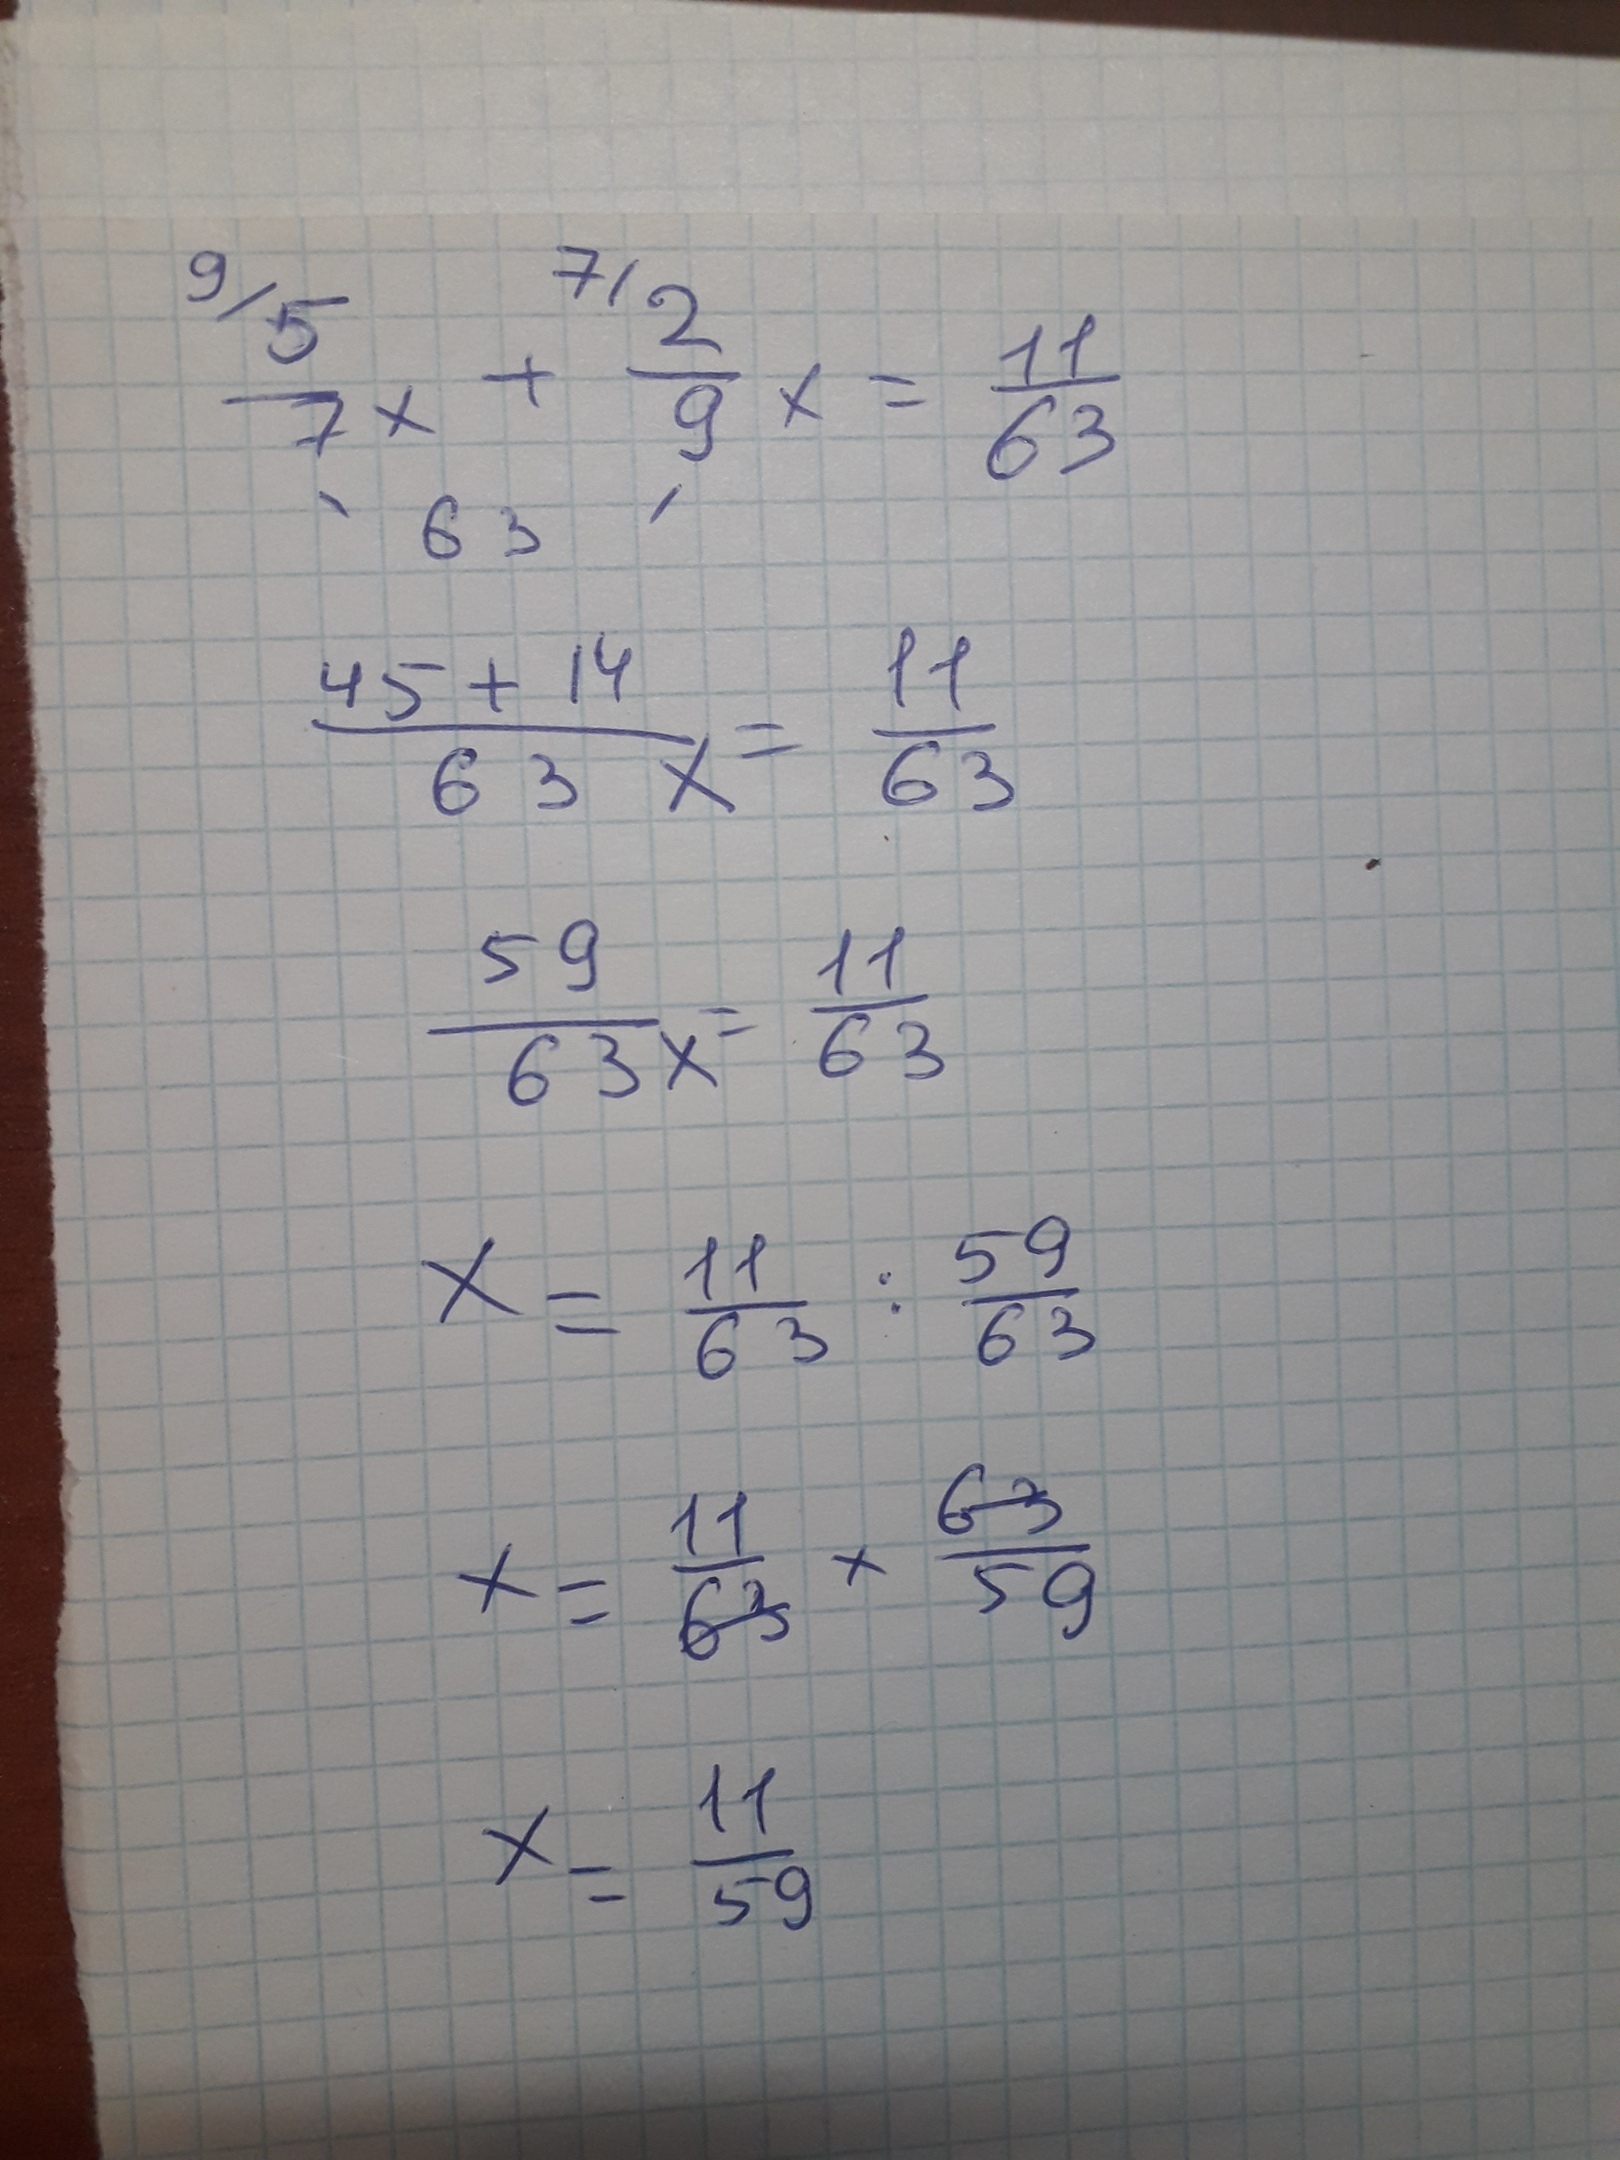 9/ 5/7 x + 7/ 2/9 x = 11/63
63
45 + 14/63 x = 11/63
59/63 x = 11/63
x = 11/63 : 59/63
x = 11/63 × 63/59
x = 11/59